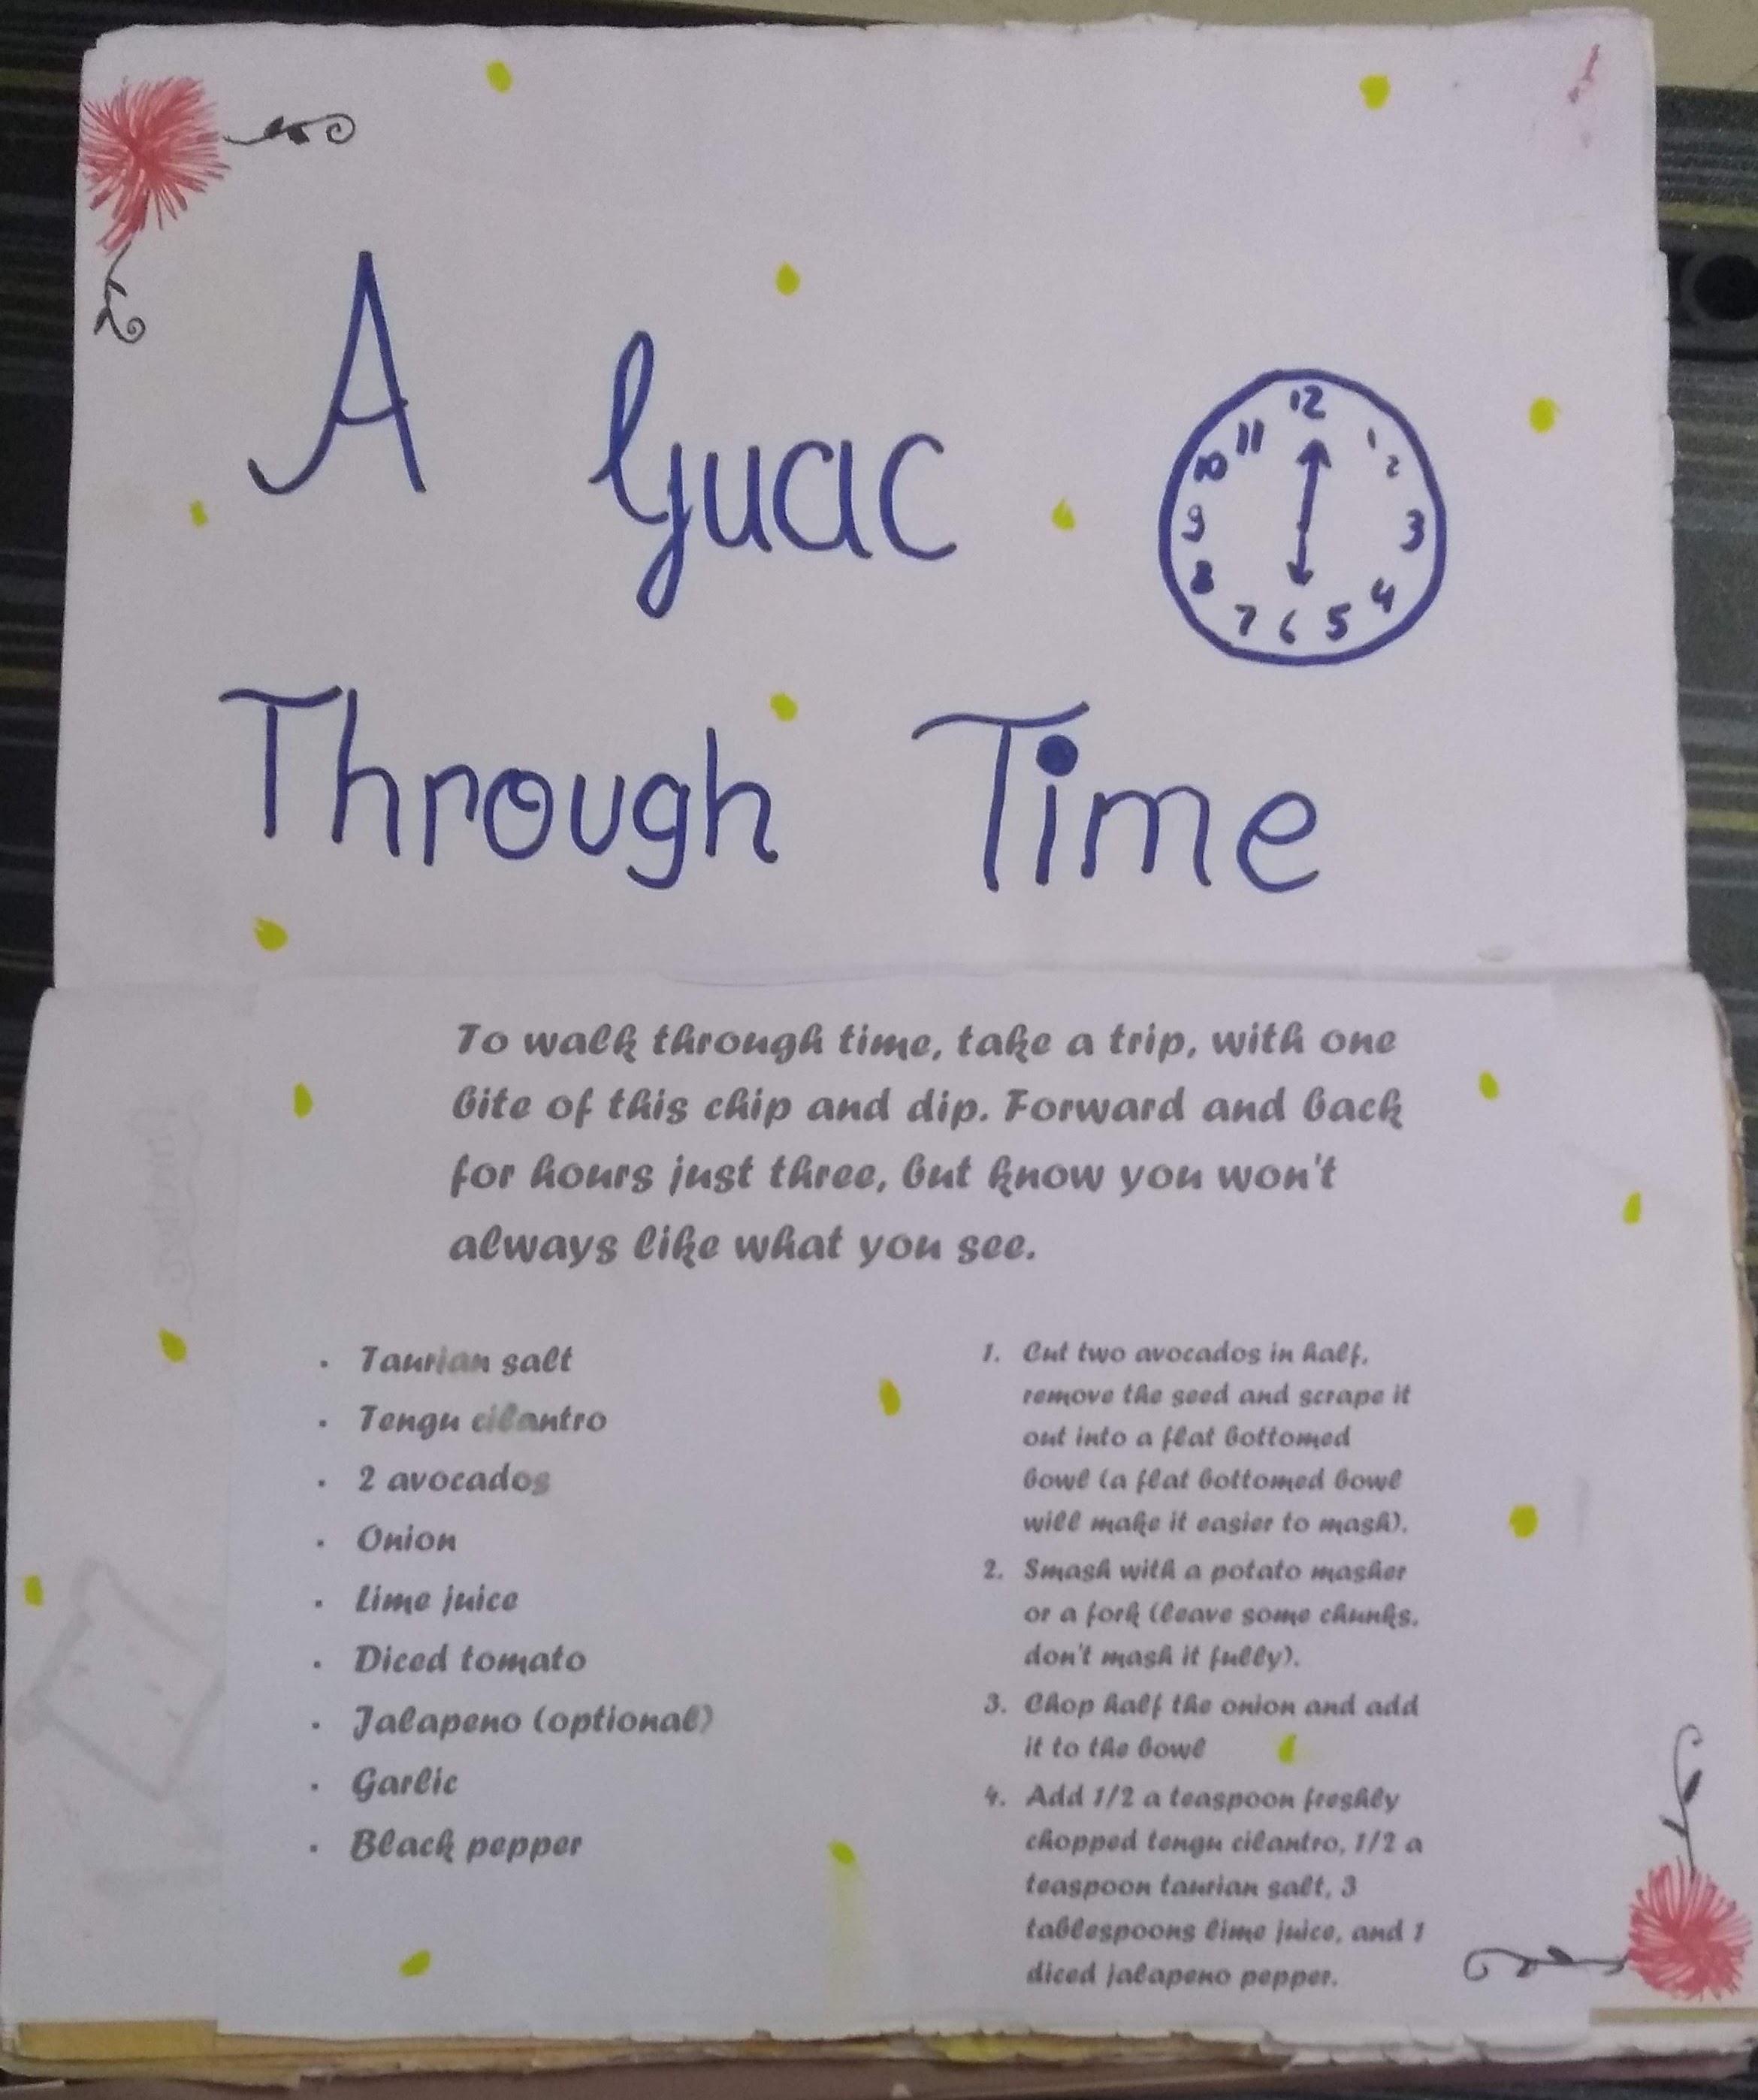 A Guac
12
11 1
10 2
9 3
8 4
7 6 5
Through Time
To walk through time, take a trip, with one
bite of this chip and dip. Forward and back
for hours just three, but know you won't
always like what you see.
• Taurian salt
• Tengu cilantro
• 2 avocados
• Onion
• Lime juice
• Diced tomato
• Jalapeno (optional)
• Garlic
• Black pepper
1. Cut two avocados in half,
remove the seed and scrape it
out into a flat bottomed
bowl (a flat bottomed bowl
will make it easier to mash).
2. Smash with a potato masher
or a fork (leave some chunks,
don't mash it fully).
3. Chop half the onion and add
it to the bowl
4. Add 1/2 a teaspoon freshly
chopped tengu cilantro, 1/2 a
teaspoon taurian salt, 3
tablespoons lime juice, and 1
diced jalapeno pepper.